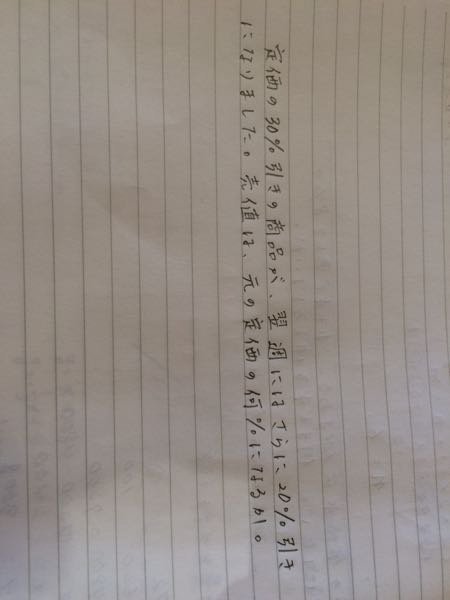 定価の30%引きの商品が、翌週にはさらに20%引き
になりました。売値は、元の定価の何%になるか。